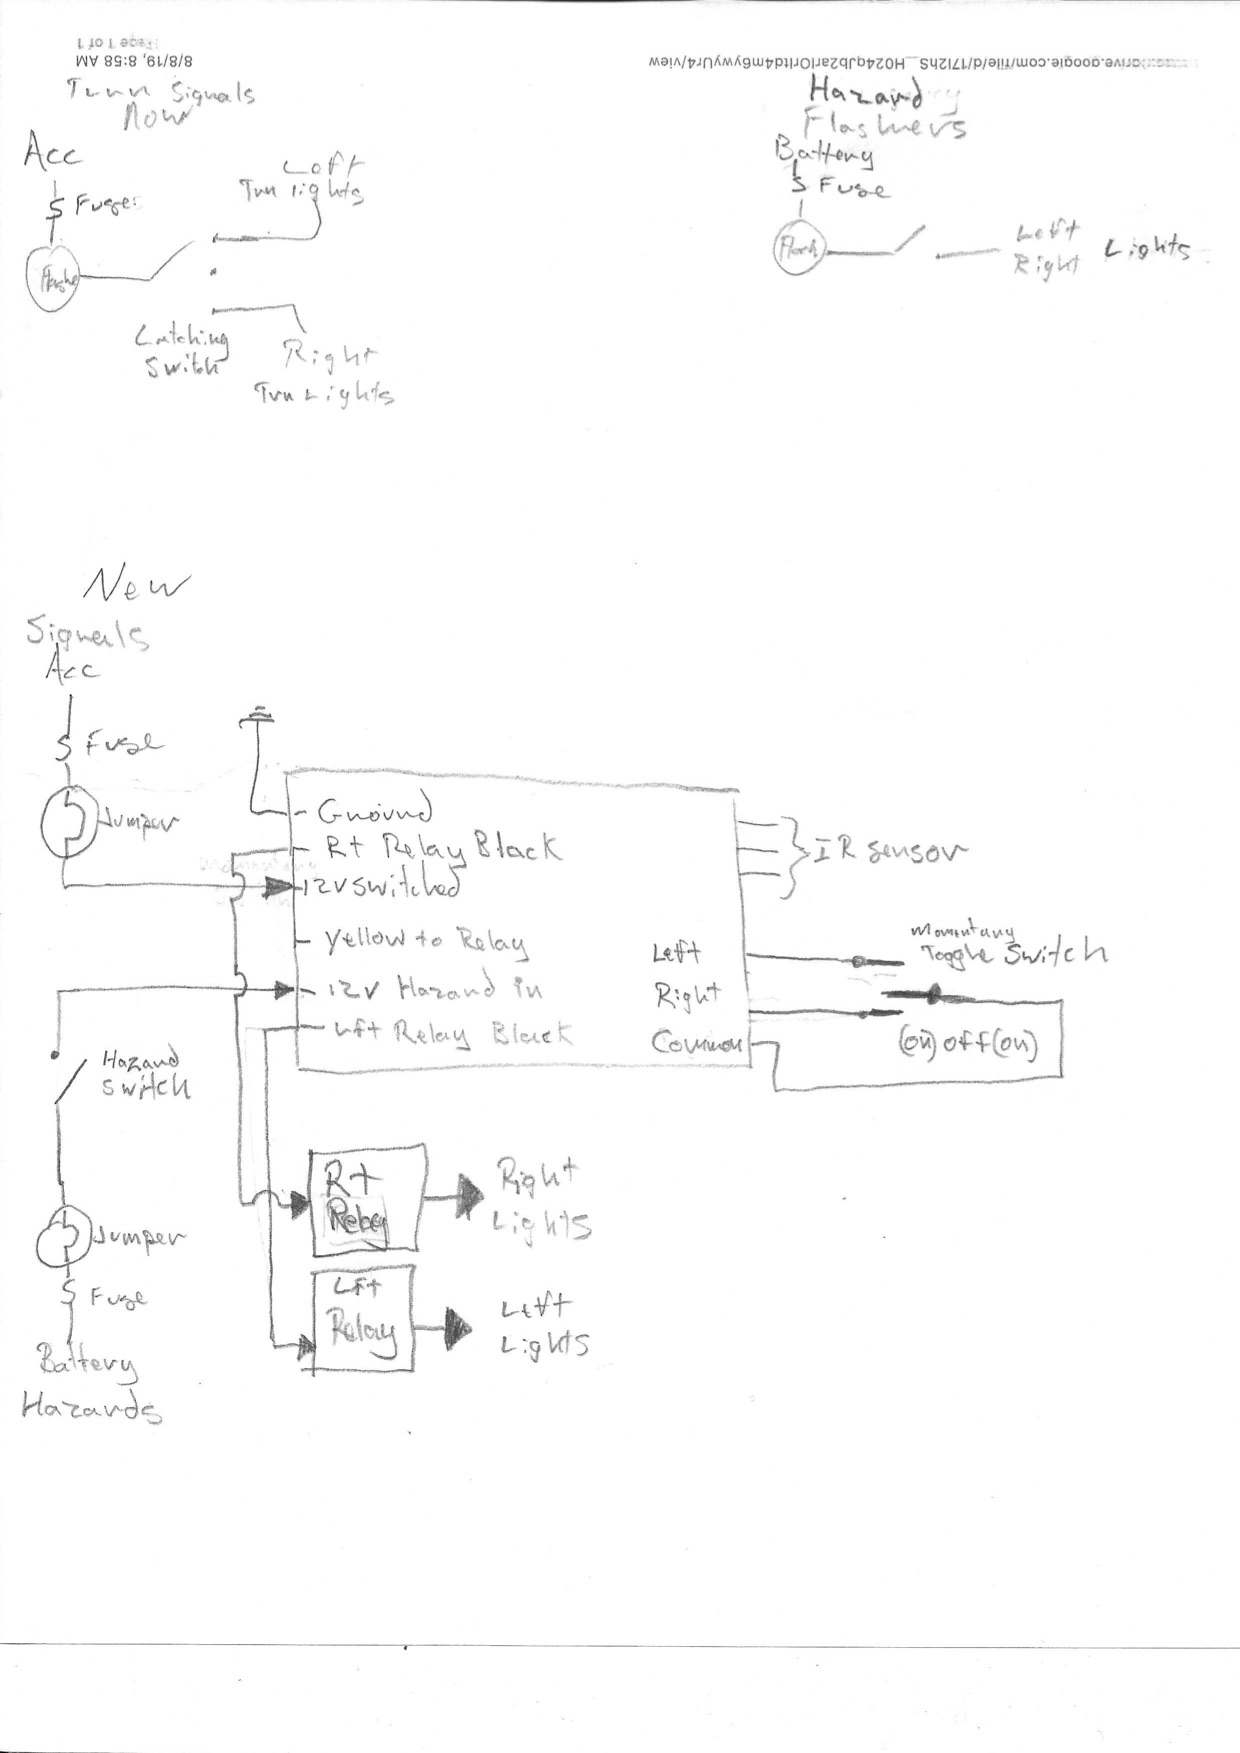 Page 1 of 1
8/8/19, 8:58 AM
Turn Signals
Now
Acc
Fuse
Flasher
Left
Turn lights
Latching
Switch
Right
Turn Lights
Hazard
Flashers
Battery
Fuse
Flash
Left
Right Lights
New
Signals
Acc
Fuse
Jumper
Ground
Rt Relay Black
12V Switched
Yellow to Relay
12V Hazard in
Lft Relay Black
IR sensor
Left
Right
Common
Momentary
Toggle Switch
(on) off (on)
Hazard
Switch
Jumper
Fuse
Battery
Hazards
Rt
Relay
Right
Lights
Lft
Relay
Left
Lights